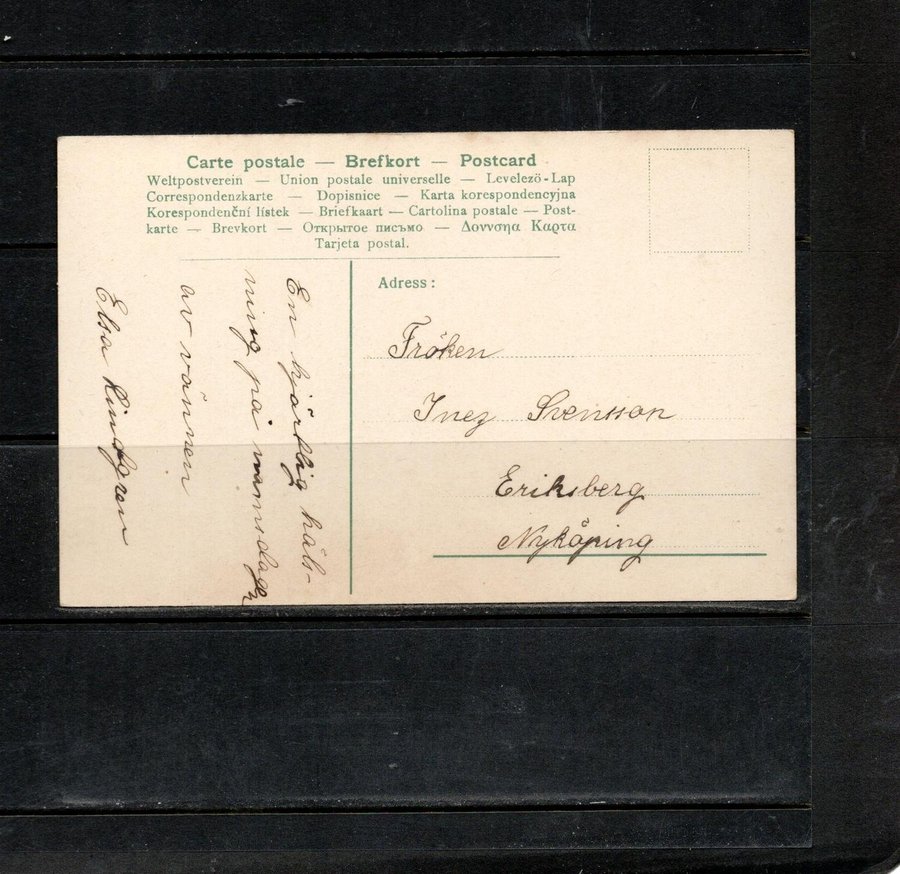 Carte postale — Brefkort — Postcard
Weltpostverein — Union postale universelle — Levelezö-Lap
Correspondenzkarte — Dopisnice — Karta korespondencyjna
Korespondenční lístek — Briefkaart — Cartolina postale — Post-
karte — Brevkort — Открытое письмо — Δοννσηα Καρτα
Tarjeta postal.
En hjärtlig häls-
ning på namnsdagen
av vännen
Elsa Lindgren
Adress:
Fröken
Inez Svensson
Eriksberg
Nyköping